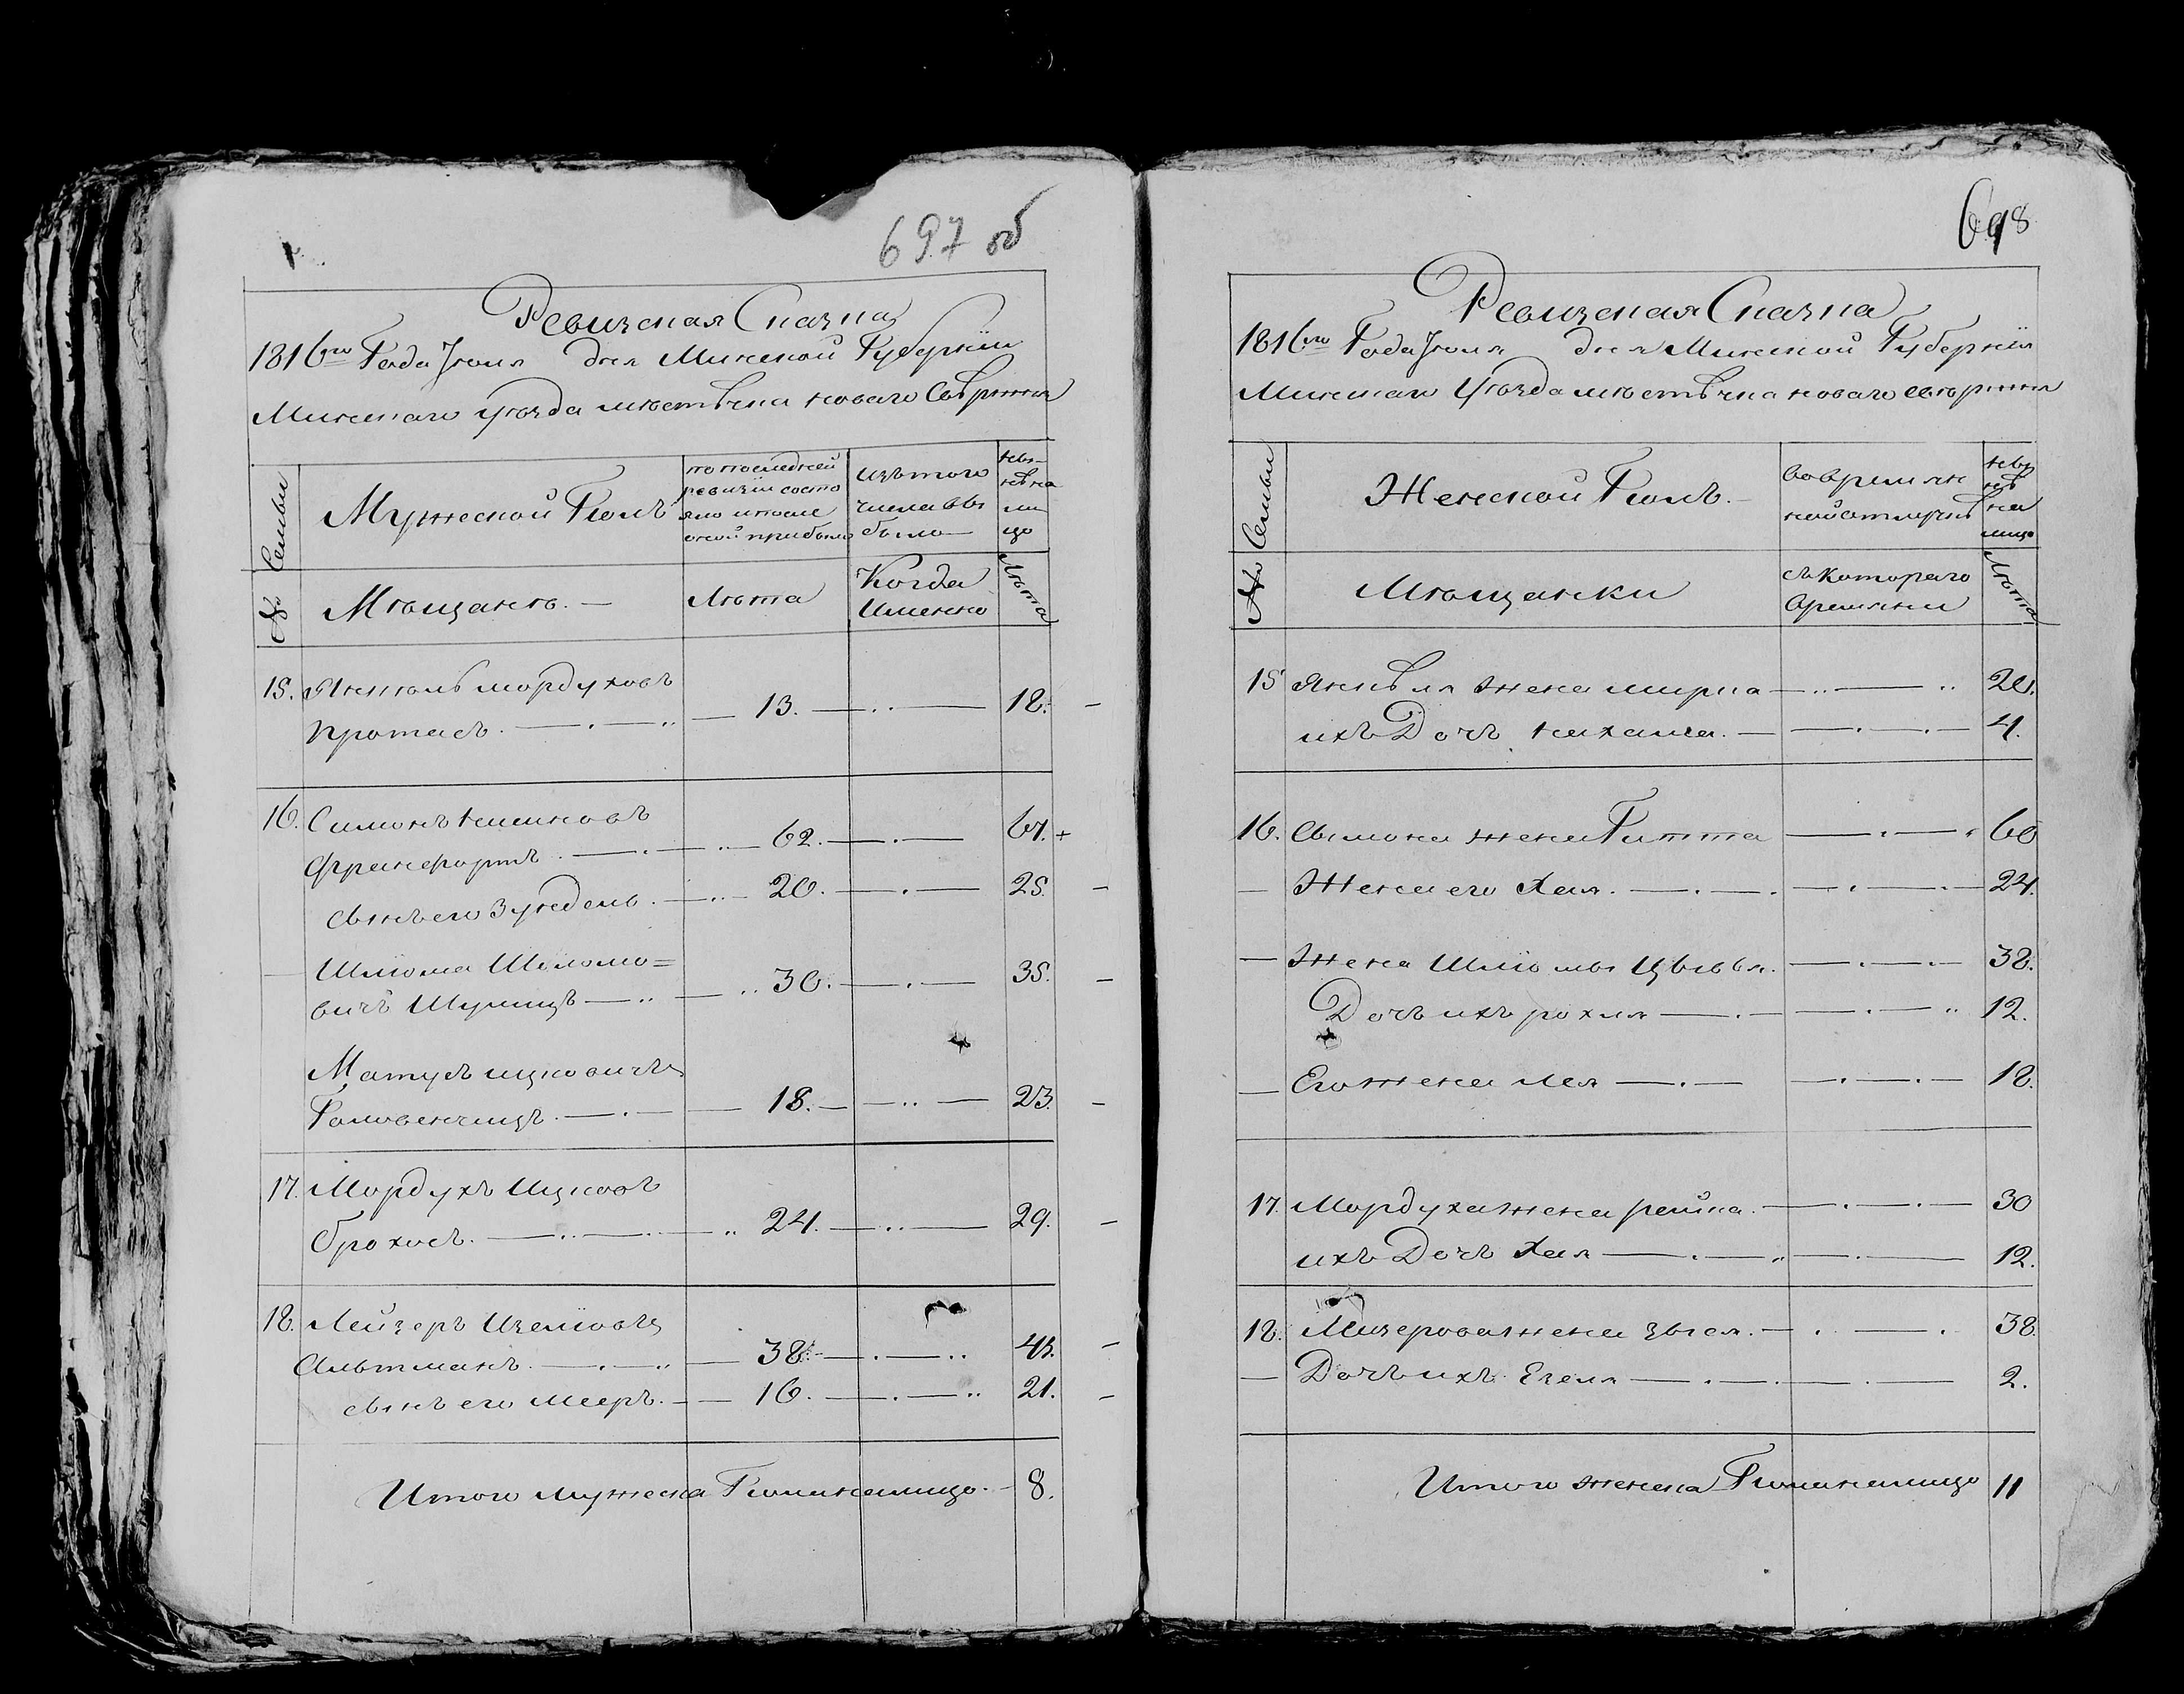 697 об
Ревизская Сказка
1816го Года Июля дня Минской Губернии
Минскаго уѣзда мѣстѣчка новаго Свѣржня
№ Семьи
Мужеской Полъ
по последней
ревизіи состо
яло и после
оной прибыло
изъ того
числа вы
было
нынѣ
на
ли
цо
Мѣщанѣ. —
Лѣта
Когда
Именно
Лѣта
15. Янкель мордуховъ
протасъ. — 13. — 18.
16. Симонъ
Франкфортъ. — 62. — 67. +
сынъ его Зундель. — 20. — 25.
Шліома Шоломо=
вичъ — 30. — 35.
Матусъ ицковичъ
Головенчицъ. — 18. — 23.
17. Мордухъ Ицковъ
брохосъ. — 24. — 29.
18. Лейзеръ
Альтманъ. — 38. — 43.
сынъ его Мееръ. — 16. — 21.
Итого мужеска Пола налицо. — 8.
698
Ревизская Сказка
1816го Года Июля дня Минской Губерніи
Минскаго Уѣзда мѣстѣчка новаго свѣржня
№ Семьи
Женской Полъ. —
во времян
ной отлучкѣ
нынѣ
на
лицо
Мѣщанки
съ Котораго
времяни
Лѣта
15 Янкѣля жена мирка — 20.
ихъ Дочь нахама. — 4.
16. Сымона жена Гитта — 60
— Жена его Хая. — 24.
— Жена Шліомы Цывья. — 38.
Дочь ихъ рохля — 12.
— Его жена Лея — 18.
17. Мордуха жена рейна. — 30
ихъ Дочь Хая — 12.
18. Лизерова жена — 38.
— Дочь ихъ — 2.
Итого женска Пола налицо 11